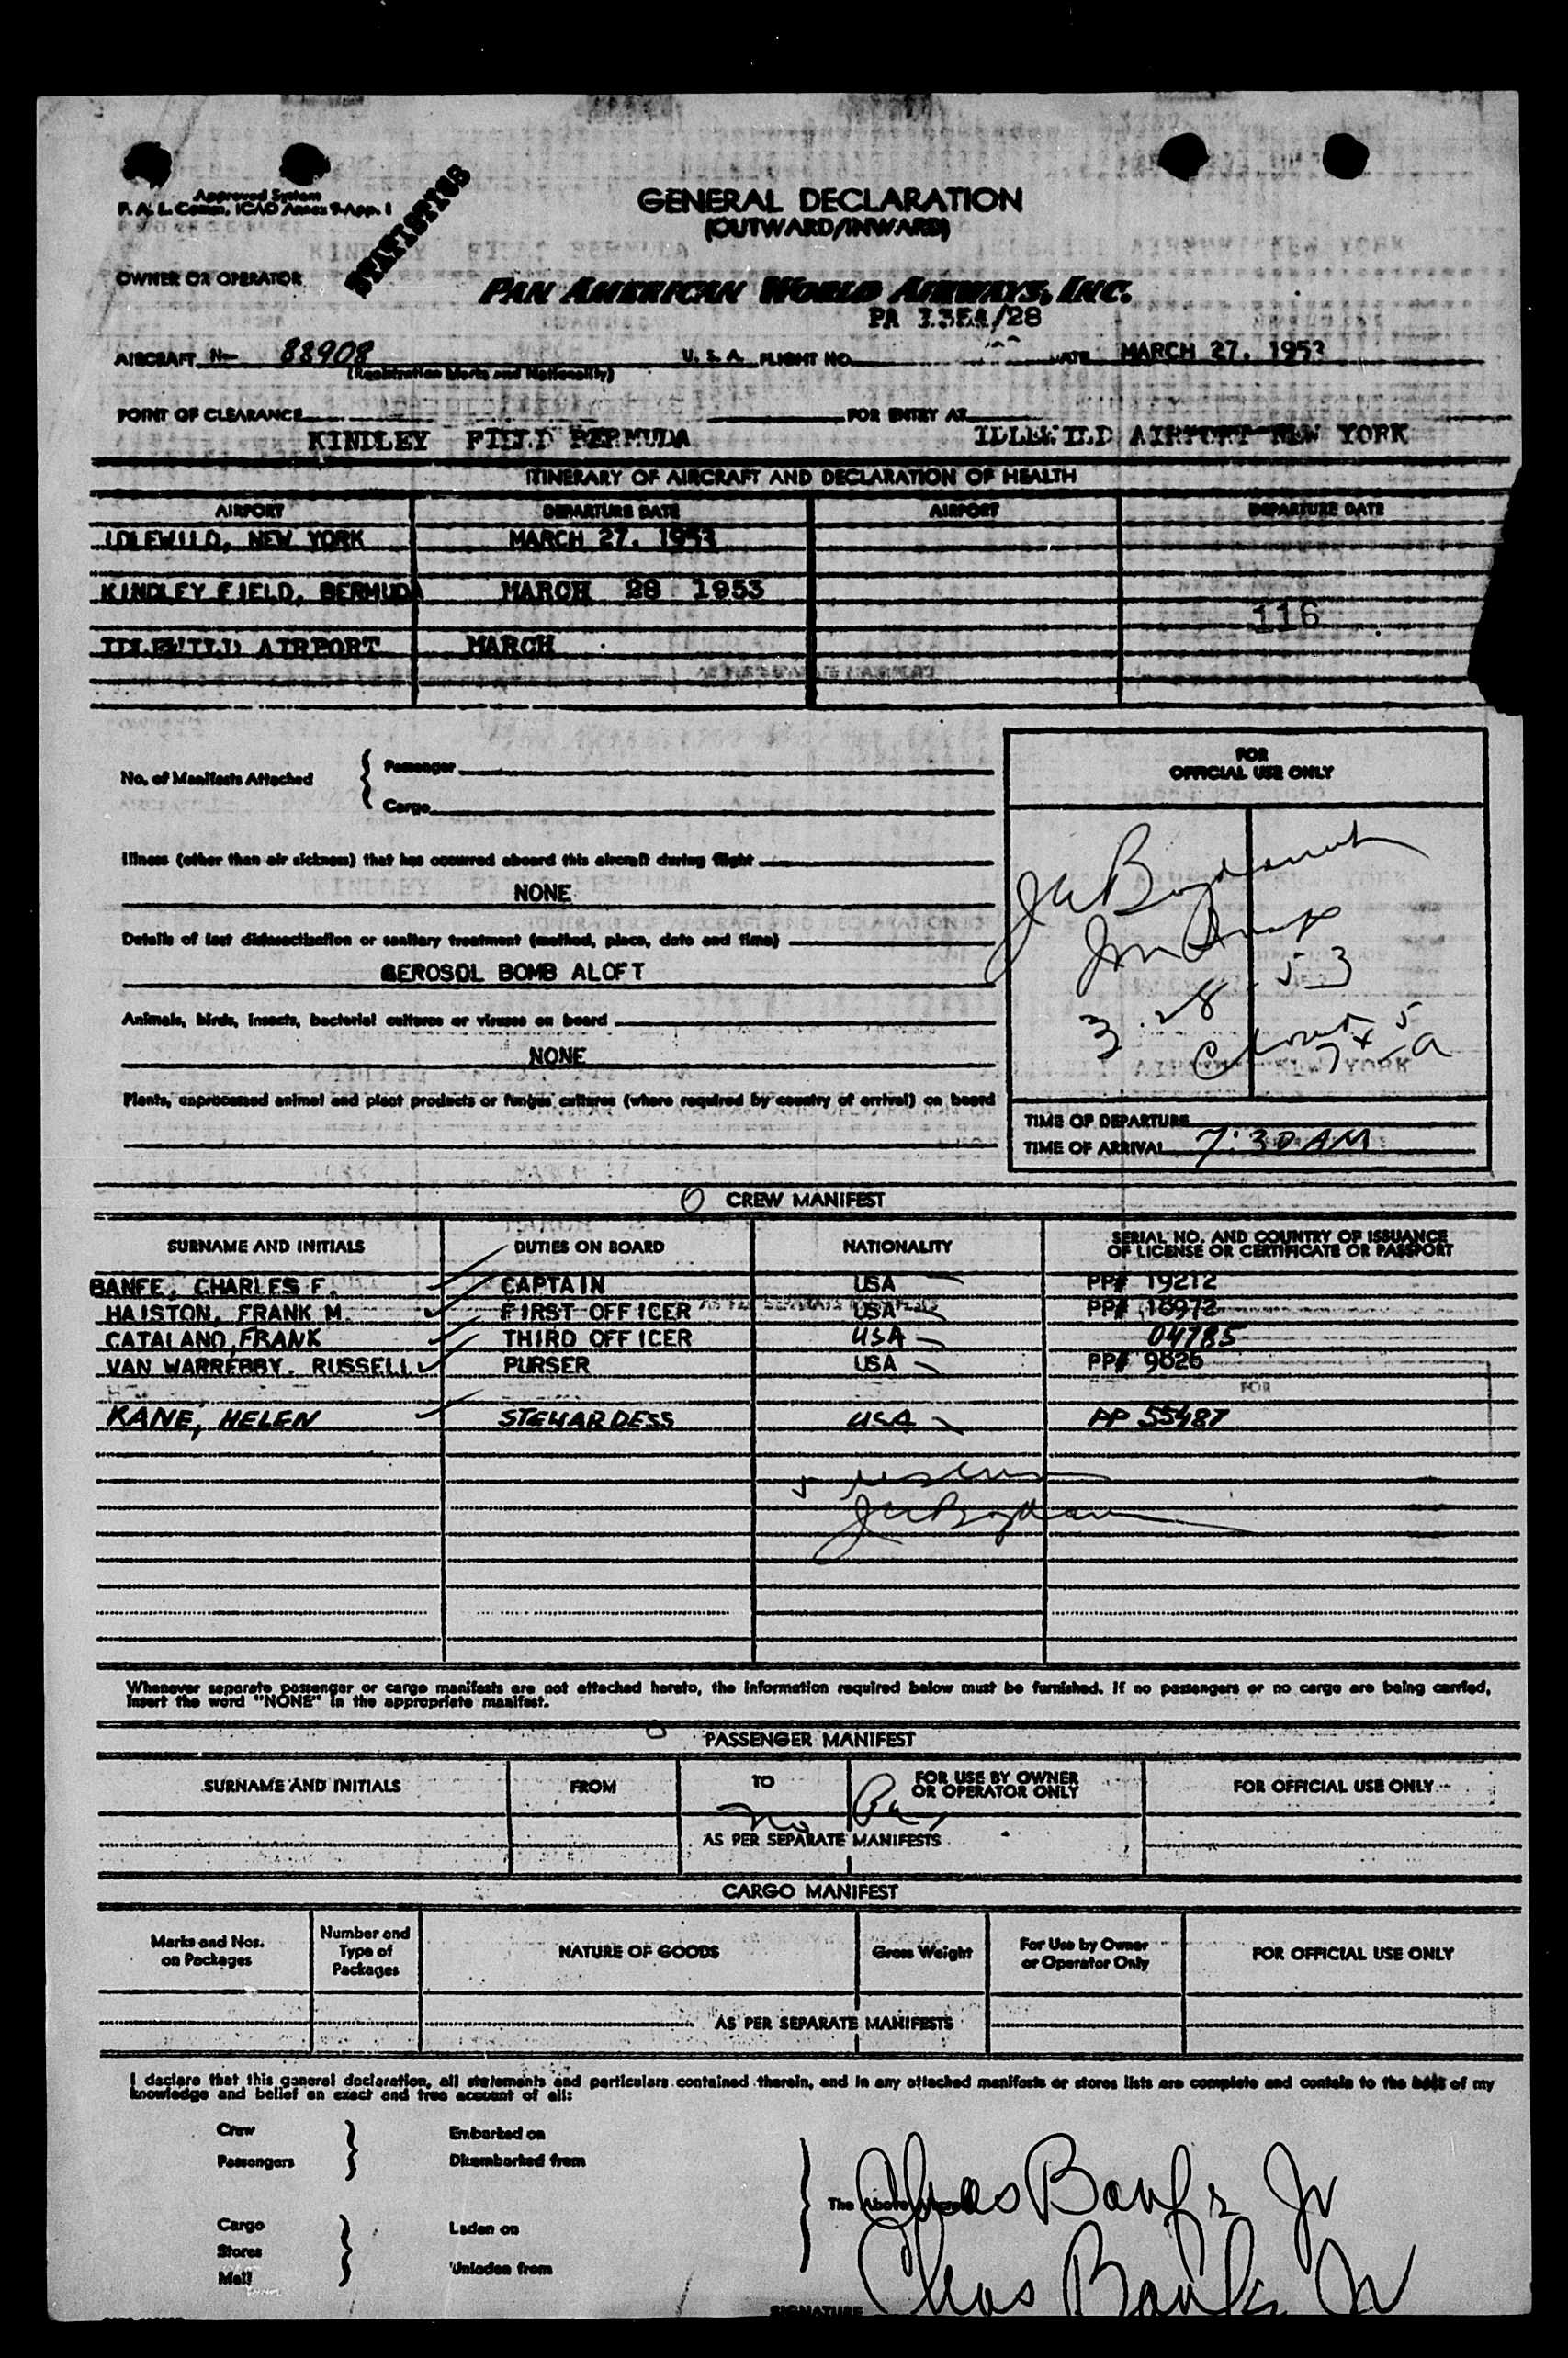 Approved System
F. A. L. Comm. ICAO Annex 9-App. 1
STATISTICS
GENERAL DECLARATION
(OUTWARD/INWARD)
OWNER OR OPERATOR
PAN AMERICAN WORLD AIRWAYS, INC.
AIRCRAFT N- 88908 U. S. A. FLIGHT NO. DATE MARCH 27, 1953
(Registration Marks and Nationality)
POINT OF CLEARANCE FOR ENTRY AT
KINDLEY FIELD BERMUDA IDLEWILD AIRPORT NEW YORK
ITINERARY OF AIRCRAFT AND DECLARATION OF HEALTH
AIRPORT DEPARTURE DATE AIRPORT DEPARTURE DATE
IDLEWILD, NEW YORK MARCH 27, 1953
KINDLEY FIELD, BERMUDA MARCH 28 1953
116
IDLEWILD AIRPORT MARCH
No. of Manifests Attached
Passenger
Cargo
FOR
OFFICIAL USE ONLY
Illness (other than air sickness) that has occurred aboard this aircraft during flight
NONE
Details of last disinsectization or sanitary treatment (method, place, date and time)
AEROSOL BOMB ALOFT
3.28.53
Animals, birds, insects, bacterial cultures or viruses on board
NONE
Plants, unprocessed animal and plant products or fungus cultures (where required by country of arrival) on board
TIME OF DEPARTURE
TIME OF ARRIVAL 7:30 AM
CREW MANIFEST
SURNAME AND INITIALS DUTIES ON BOARD NATIONALITY SERIAL NO. AND COUNTRY OF ISSUANCE
OF LICENSE OR CERTIFICATE OR PASSPORT
BANFE, CHARLES F. CAPTAIN USA PP# 19212
HAISTON, FRANK M. FIRST OFFICER USA PP# 16972
CATALANO, FRANK THIRD OFFICER USA 04785
VAN WARREBBY, RUSSELL PURSER USA PP# 9826
KANE, HELEN STEWARDESS USA PP 55487
Whenever separate passenger or cargo manifests are not attached hereto, the information required below must be furnished. If no passengers or no cargo are being carried,
insert the word "NONE" in the appropriate manifest.
PASSENGER MANIFEST
SURNAME AND INITIALS FROM TO FOR USE BY OWNER
OR OPERATOR ONLY FOR OFFICIAL USE ONLY
No Pax
AS PER SEPARATE MANIFESTS
CARGO MANIFEST
Marks and Nos.
on Packages
Number and
Type of
Packages
NATURE OF GOODS Gross Weight
For Use by Owner
or Operator Only
FOR OFFICIAL USE ONLY
AS PER SEPARATE MANIFESTS
I declare that this general declaration, all statements and particulars contained therein, and in any attached manifests or stores lists are complete and contain to the best of my
knowledge and belief an exact and true account of all:
Crew
Passengers
Embarked on
Disembarked from
The Above
Chas Banfe Jr
Cargo
Stores
Mail
Laden on
Unladen from
SIGNATURE Chas Banfe Jr